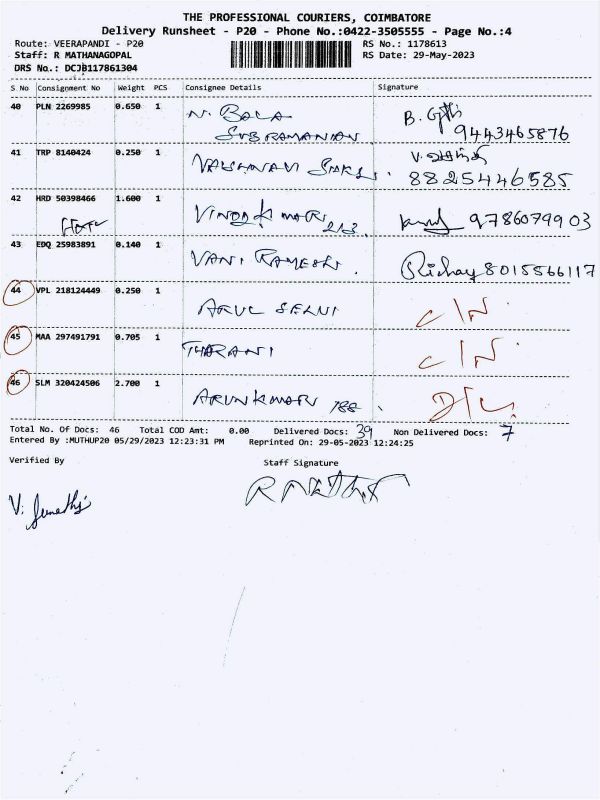 THE PROFESSIONAL COURIERS, COIMBATORE
Delivery Runsheet - P20 - Phone No.:0422-3505555 - Page No.:4
Route: VEERAPANDI - P20 RS No.: 1178613
Staff: R MATHANAGOPAL RS Date: 29-May-2023
DRS No.: DCJB117861304
S No Consignment No Weight PCS Consignee Details Signature
40 PLN 2269985 0.650 1 N. BALA SUBRAMANIAN B. 9443465876
41 TRP 8140424 0.250 1 8825446585
42 HRD 50398466 1.600 1 VINOD KUMAR 213 9786079903
43 EDQ 25983891 0.140 1 VANI RAMESH. 8015566117
44 VPL 218124449 0.250 1 ARUL SELVI C/N
45 MAA 297491791 0.705 1 THARANI C/N
46 SLM 320424506 2.700 1 ARUNKUMAR 188. D/L
Total No. Of Docs: 46 Total COD Amt: 0.00 Delivered Docs: 39 Non Delivered Docs: 7
Entered By :MUTHUP20 05/29/2023 12:23:31 PM Reprinted On: 29-05-2023 12:24:25
Verified By Staff Signature